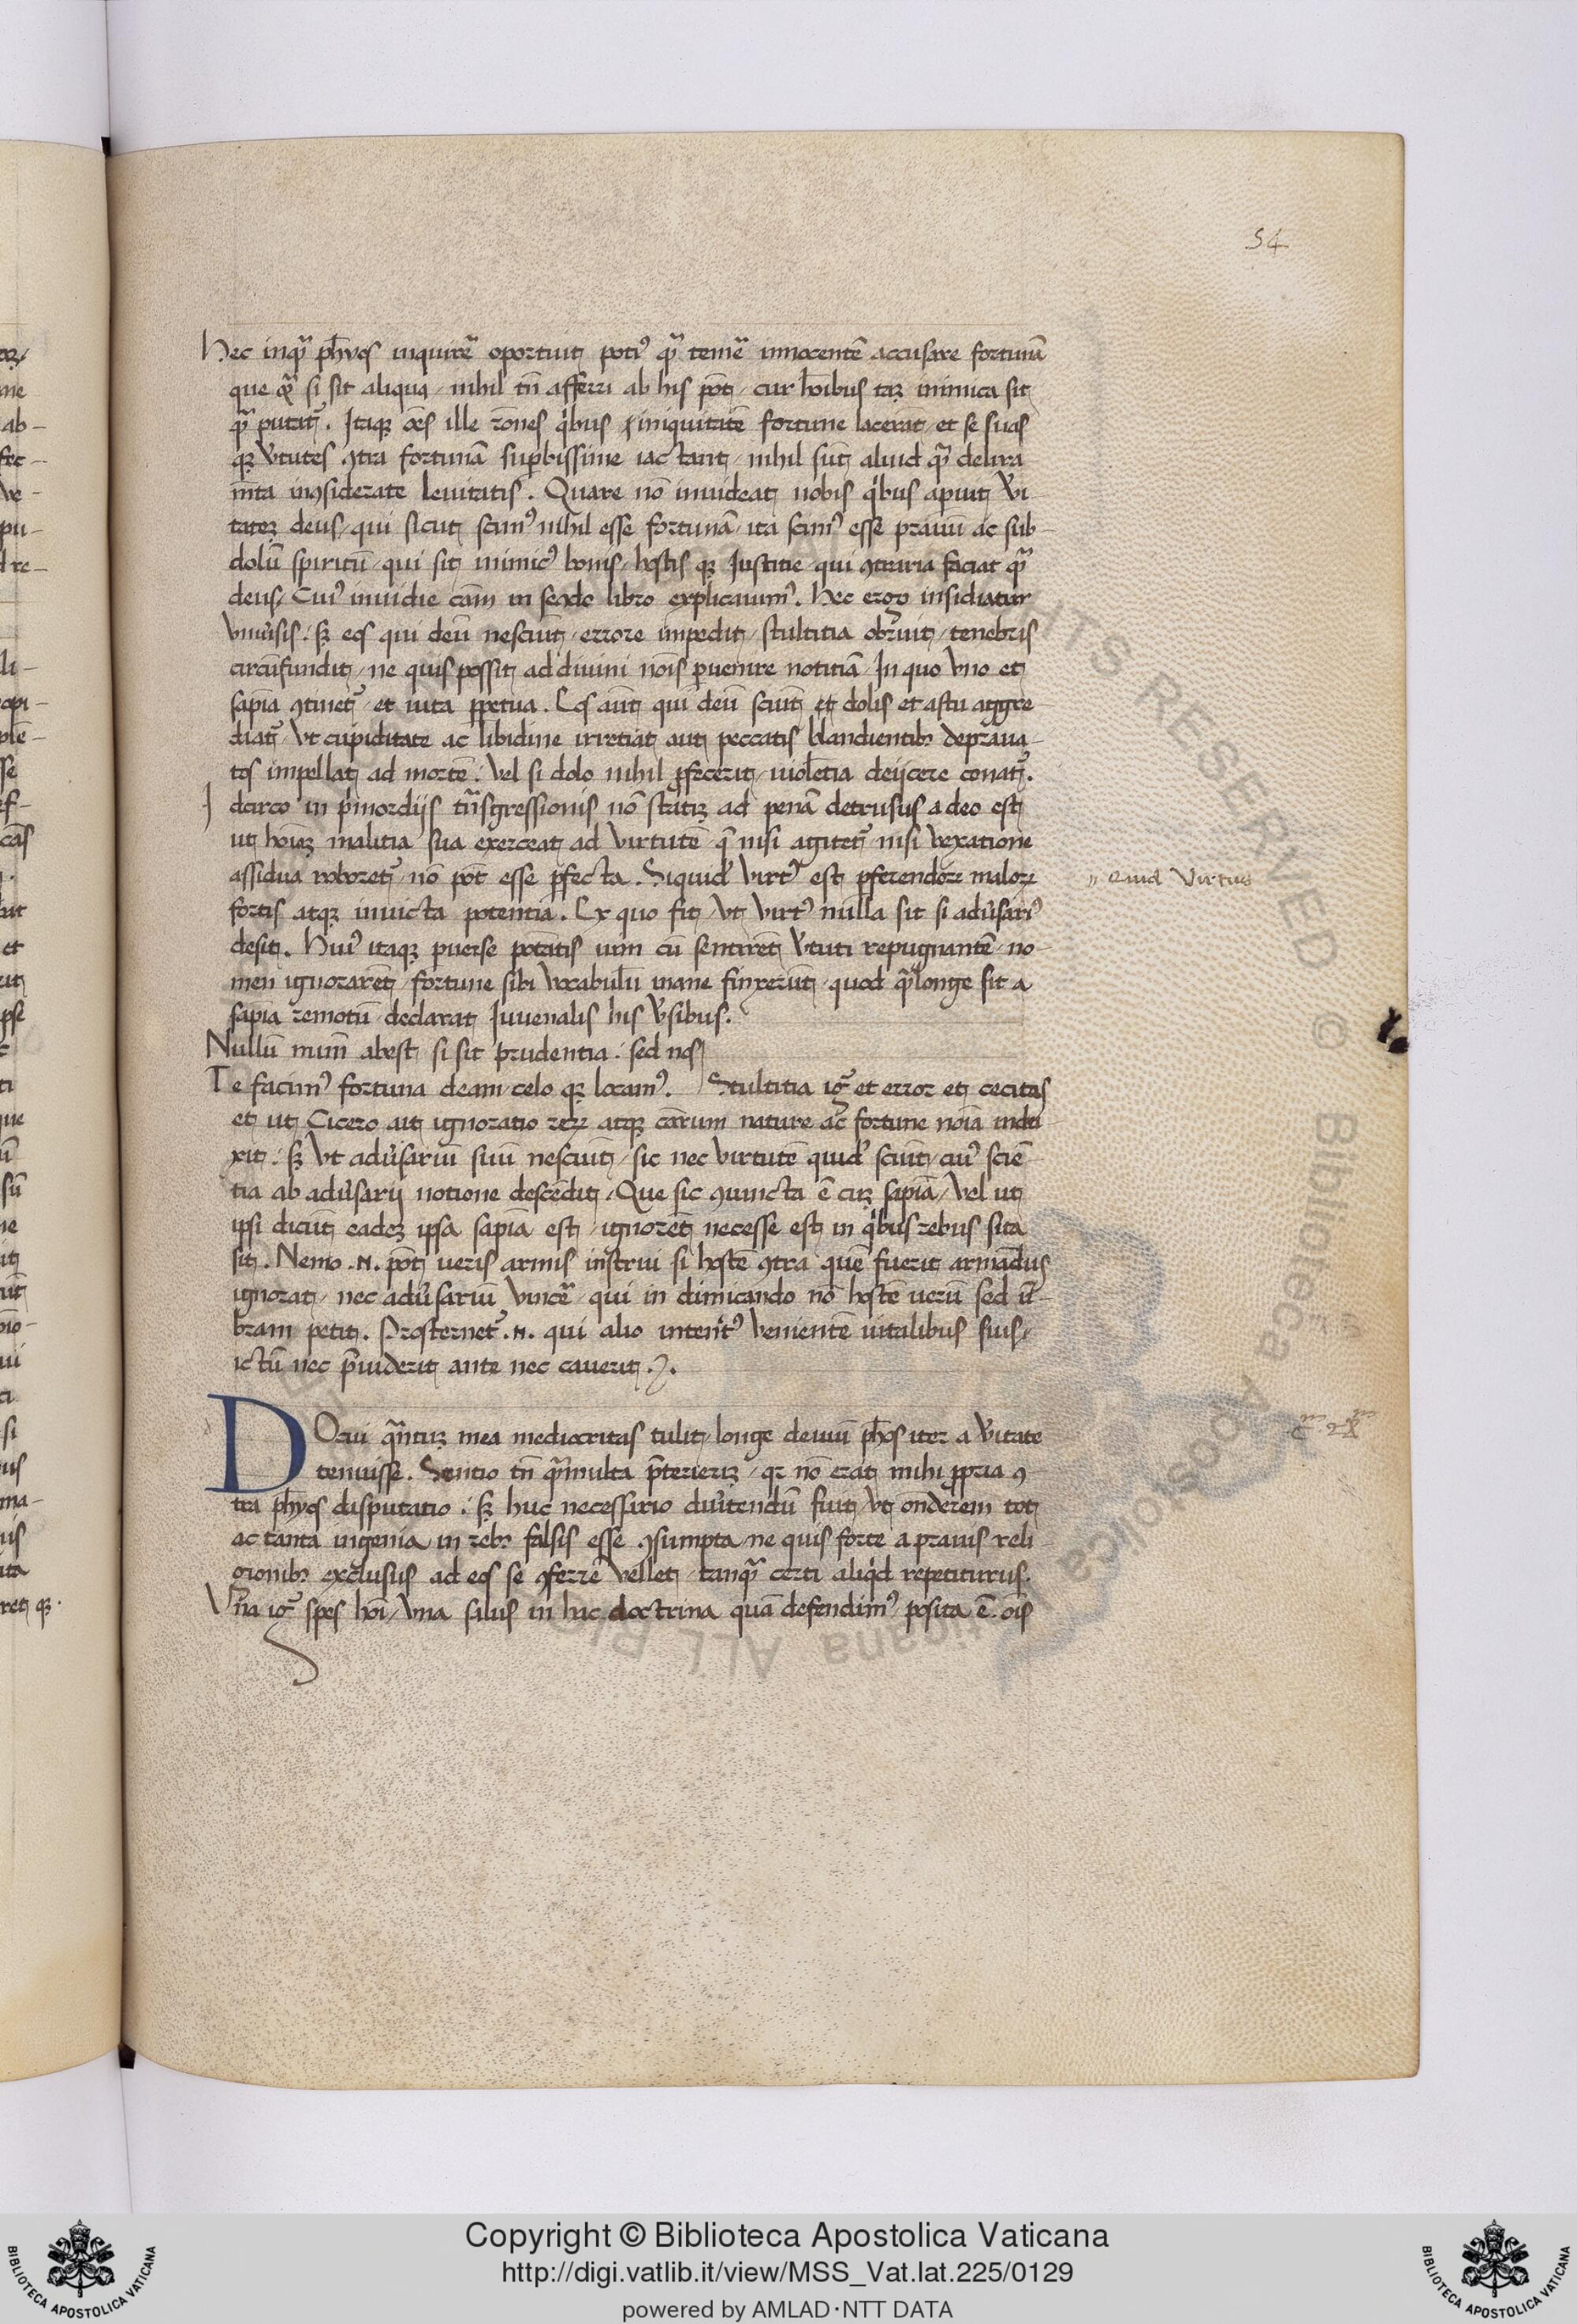 54
Hec inqͣ ph̄os inquirē̄ oportuit poti⁹ qͣ temē̄ innocentē accusare fortunā
que qͣ si sit aliqua / nihil tn̄ afferri ab his pōt / cur hōibus tāꝫ inimica sit
qͣ putat̄. Itaqꝫ oēs ille rōnes qͥbus iniquitatē fortune lacerāt / et se suas
qꝫ v̄tutes ꝯtra fortunā suꝑbissime iactant / nihil sūt aliud qͣ delira
mta inꝯsiderate leuitatis. Quare nō inuideāt nobis qͥbus aꝑuit v̄i
tateꝫ deus / qui sicut scim⁹ nihil esse fortunā / ita scim⁹ esse prauū ac sub-
dolū spiritū / qui sit inimic⁹ bonis / hostis qꝫ Iustitie / qui ꝯtraria faciat qͣ
deus / Cui⁹ inuidie cām in secūdo libro explicauim⁹. Hec ergo insidiatur
vniūsis : sꝫ eos qui deū nesciūt / errore impedit / stultitia obruit / tenebris
circūfundit / ne quis possit ad diuini nōis ꝑuenire notitiā / In quo vno et
sapīa ꝯtinet̄ et uita ꝑpetua. Eos aūt qui deū sciūt et dolis et astu aggre
diat̄ / vt cupiditate ac libidine irretiāt aut peccatis blandientibꝫ depraua-
tos impellāt ad mortē. Vel si dolo nihil ꝓfecerit / uiolētia deijcere conat̄.
I dcirco in pͥmordijs trāsgressionis nō statiꝫ ad penā detrusus a deo est
ut hoīeꝫ malitia sua exerceat ad virtutē / qͤ nisi agitet̄ nisi vexatione
assidua roboret̄ / nō pōt esse ꝑfecta. Siquid̄ virt⁹ est ꝑferendoꝝ maloꝝ
„ Quid Virtus
fortis atqꝫ inuicta potentia. Ex quo fit / vt virt⁹ nulla sit si adūsari⁹
desit. Hui⁹ itaqꝫ ꝑuerse potātis uim cū sentirēt v̄tuti repugnantē / no-
men ignorarēt / fortune sibi vocabulū inane finxerūt / quod qͣ longe sit a
sapīa remotū / declarat Iuuenalis his v̄sibus.
Nullū numē abest / si sit prudentia : sed nos
Te facim⁹ fortuna deam / celo qꝫ locam⁹. Stultitia ig̊ et error et cecitas
et ut Cicero ait ignoratio reꝝ atqꝫ cārum nature ac fortune noīa indu
xit : sꝫ vt adūsariū suū nesciūt / sic nec virtutē quid̄ sciūt / cui⁹ sciē-
tia ab adūsarij notione descēdit / Que sic ꝯiuncta ē cuꝫ sapīa / vel ut
ipsi dicūt eadeꝫ ipsa sapīa est / ignorēt necesse est in qͥbus rebus sita
sit. Nemo .n. pōt ueris armis instrui si hostē ꝯtra quē fuerit armādus
ignorat / nec adūsariū vincē̄ / qui in dimicando nō hostē uerū sed ū-
bram petit. Prosternet̄ .n. qui alio intent⁹ venientē uitalibus suis /
ictū nec p̄uiderit ante nec cauerit.
DOcui qͣntuꝫ mea mediocritas tulit / longe deuiū ph̄os iter a v̄itate
tenuisse. Sentio tn̄ qͣmulta p̄terieriꝫ / qꝛ nō erat mihi ꝓpria ꝯ
tra ph̄os disputatio : sꝫ huc necessario diūtendū fuit / vt ondērem tot
ac tanta ingenia in rebꝫ falsis esse ꝯsumpta / ne quis forte a prauis reli
gionibꝫ exclusus ad eos se ꝯferrē vellet / tanqͣ certi aliqͥd repetiturus.
Vna ig̊ spes hoī / vna salus in hac doctrina quā defendim⁹ posita ē ois
Copyright © Biblioteca Apostolica Vaticana
http://digi.vatlib.it/view/MSS_Vat.lat.225/0129
powered by AMLAD·NTT DATA